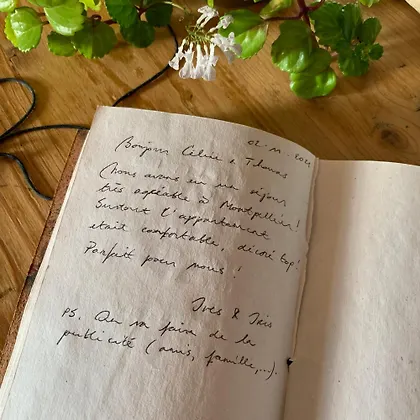 02.11.2021
Bonjour Célia & Thomas
Nous avons eu un séjour
très agréable à Montpellier!
Surtout l'appartement
etait comfortable, décoré top!
Parfait pour nous!
Ives & Iris
PS. On va faire de la
publicité (amis, famille,...).